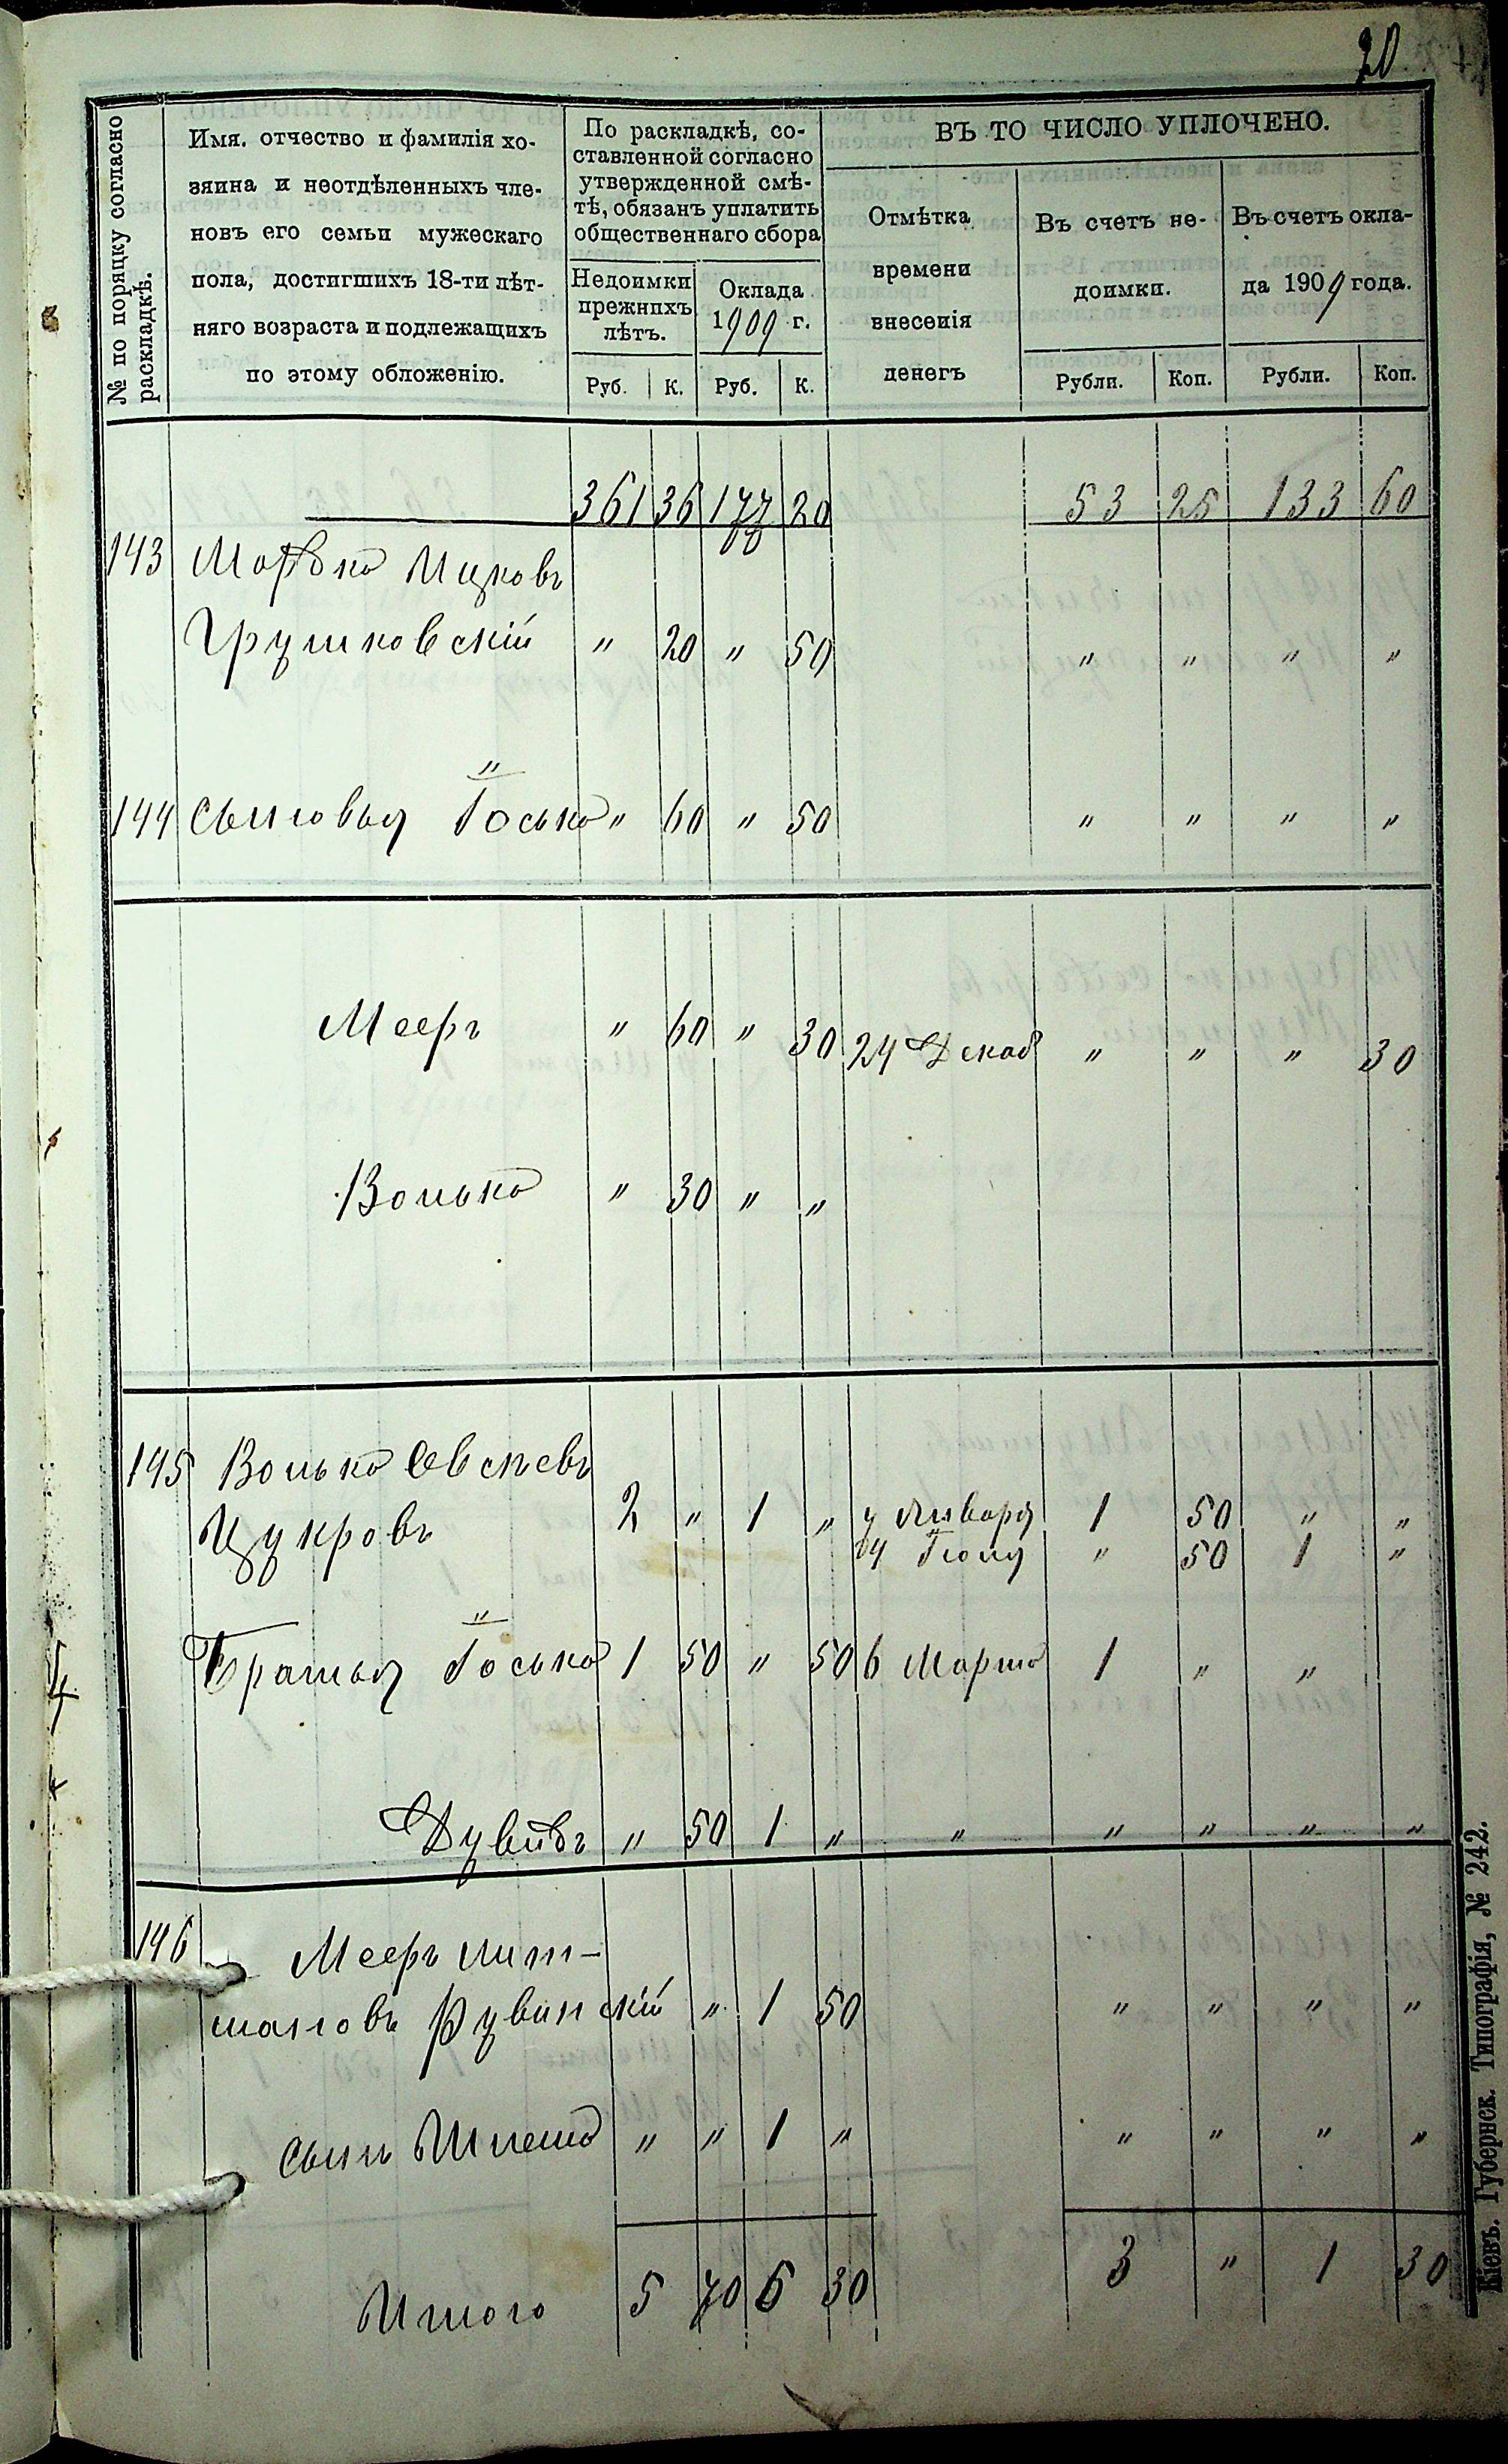 20
№ по порядку согласно раскладкѣ.
Имя, отчество и фамилія хо-
зяина и неотдѣленныхъ чле-
новъ его семьи мужескаго
пола, достигшихъ 18-ти лѣт-
няго возраста и подлежащихъ
по этому обложенію.
По раскладкѣ, со-
ставленной согласно
утвержденной смѣ-
тѣ, обязанъ уплатить
общественнаго сбора
Недоимки
прежнихъ
лѣтъ.
Оклада
1909 г.
Руб. К. Руб. К.
ВЪ ТО ЧИСЛО УПЛОЧЕНО.
Отмѣтка
времени
внесенія
денегъ
Въ счетъ не-
доимки.
Въ счетъ окла-
да 1909 года.
Рубли. Коп. Рубли. Коп.
361 36 177 20 53 25 133 60
143 Мордко Ицковъ
Грушковскій " 20 " 50 " " " "
144 Сыновья Іосько " 60 " 50 " " " "
Мееръ " 60 " 30 24 Декаб " " " 30
Волько " 30 " "
145 Волько Овсѣевъ
Цукровъ 2 " 1 " 7 Января 1 50 " "
14 Іюля " 50 1 "
Братья Іосько 1 50 " 50 6 Марта 1 " "
Дувидъ " 50 1 " " " " " "
146 Мееръ
Рувинскій " 1 50 " " " "
сынъ Шлема " " 1 " " " " "
Итого 5 70 6 30 3 " 1 30
Кіевъ. Губернск. Типографія, № 242.